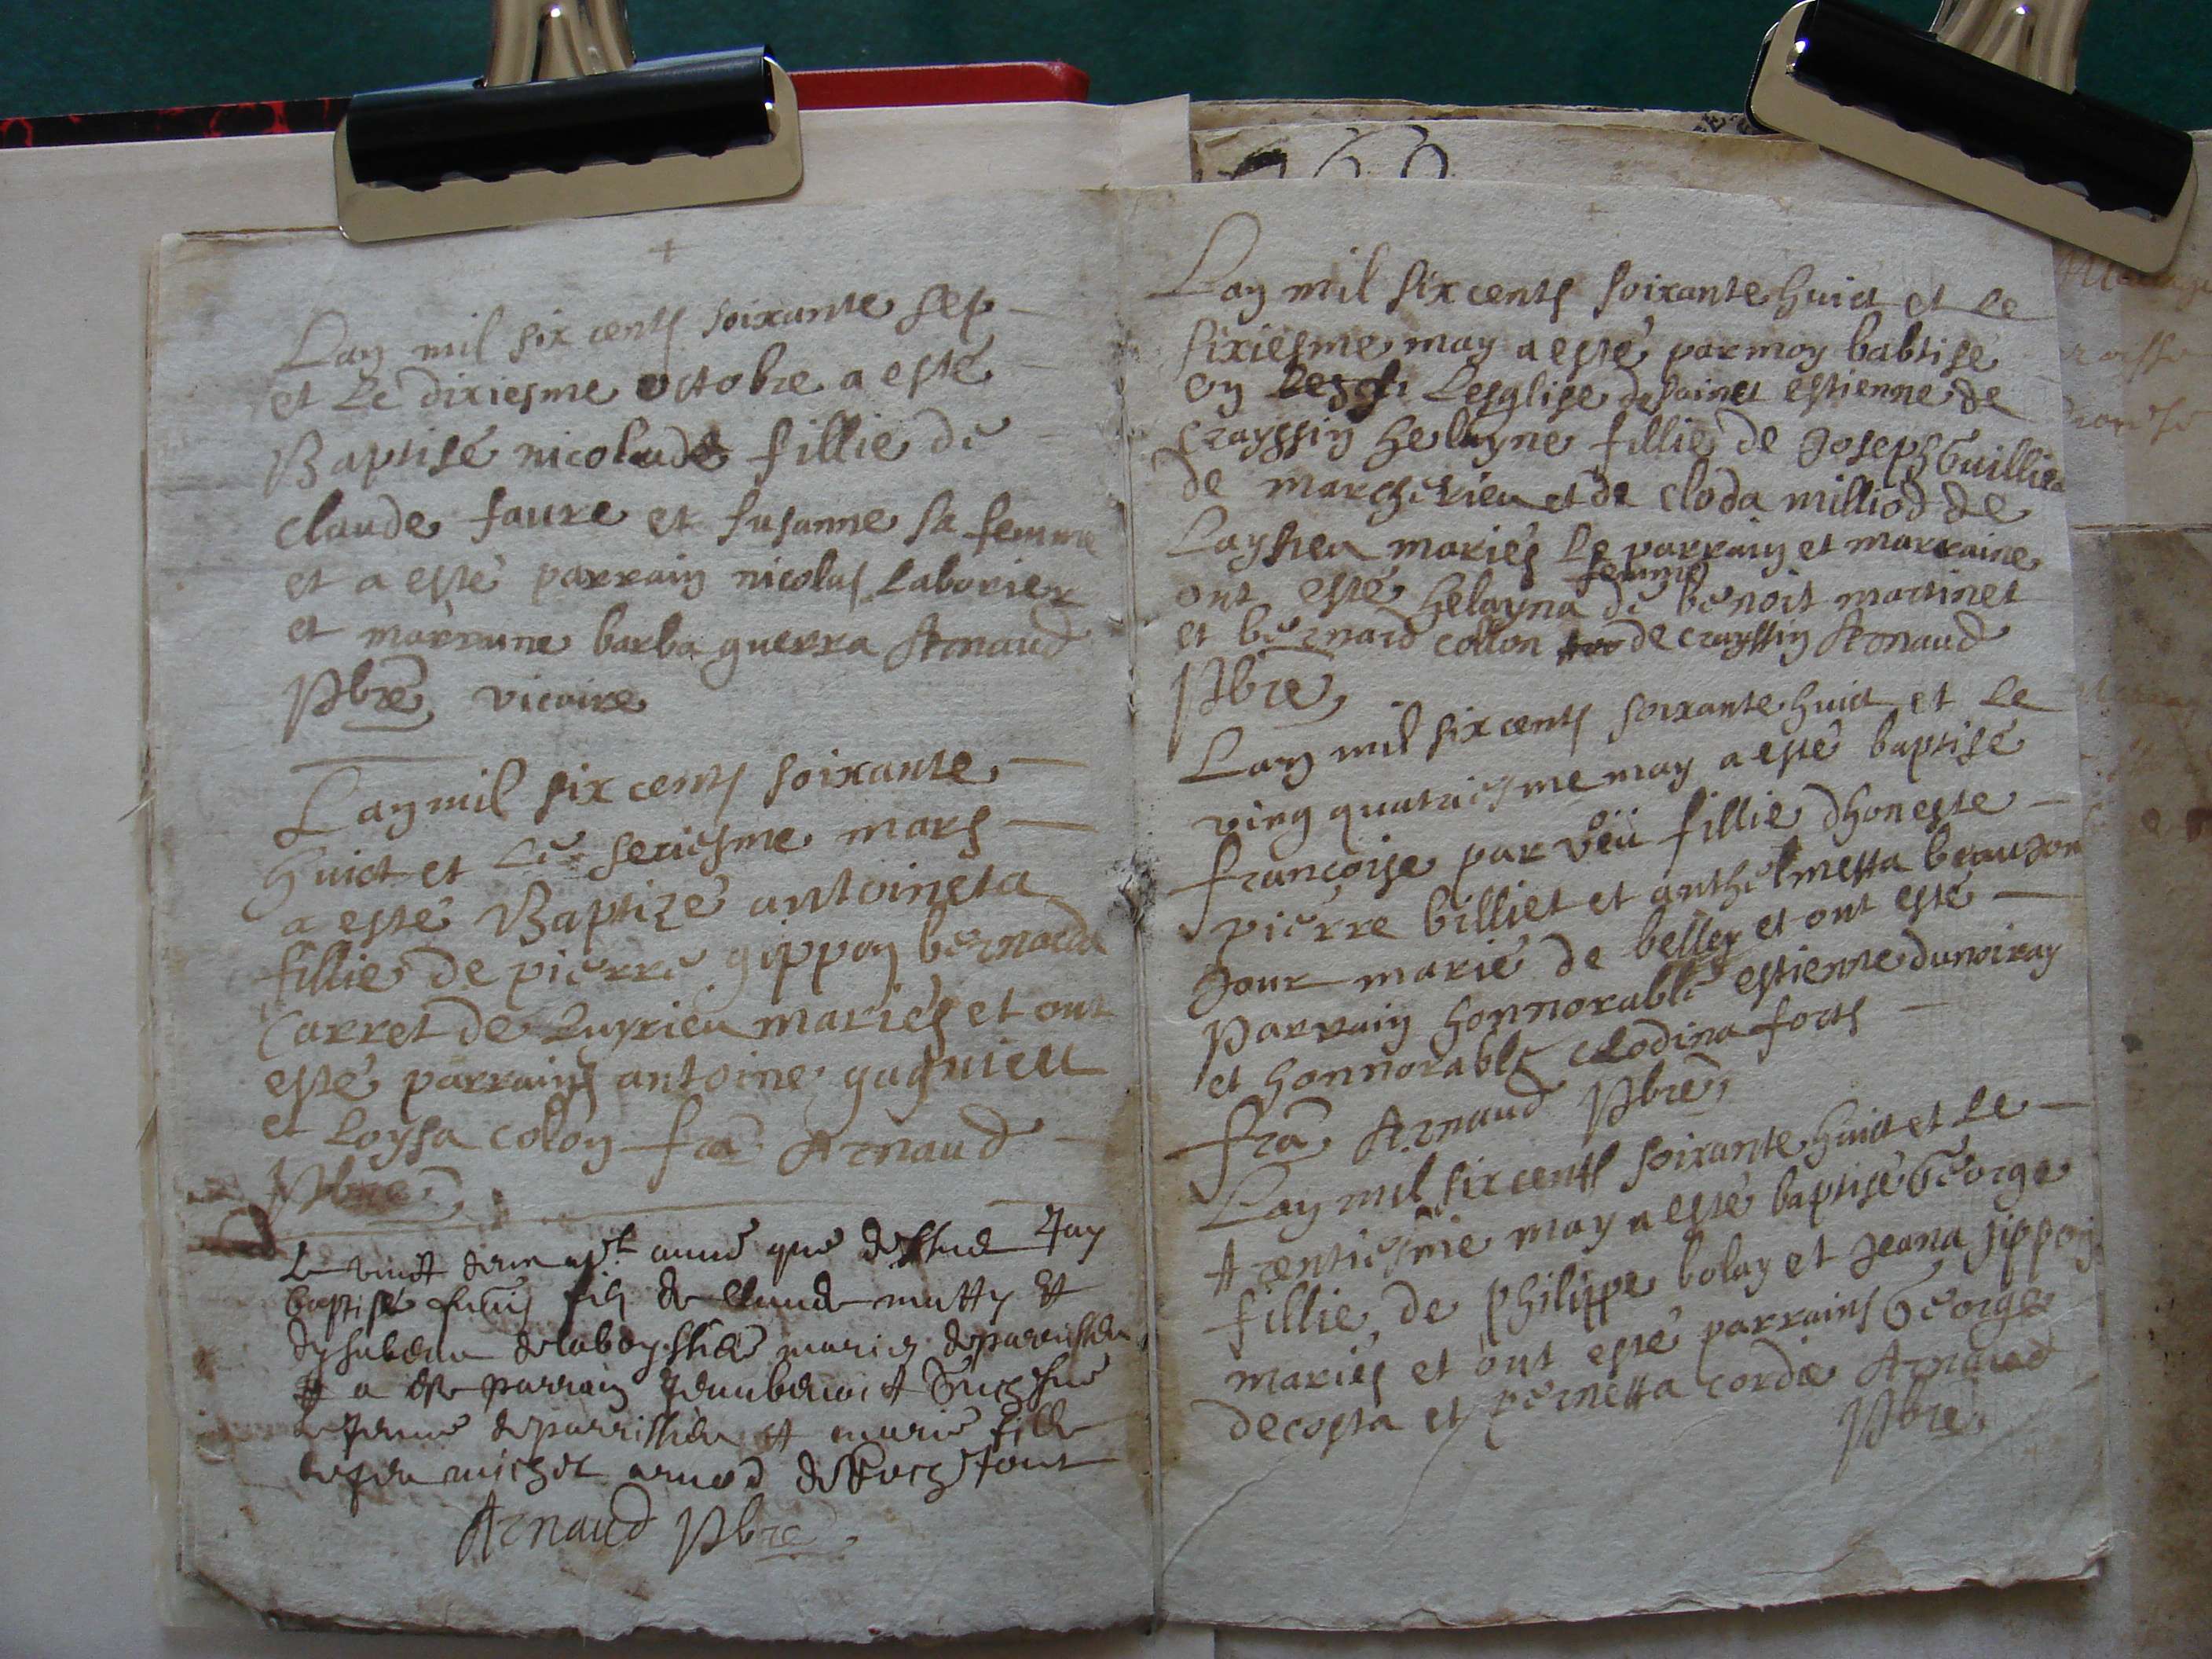 Lan mil six cents soixante sep
et Le dixiesme octobre a esté
Baptisé nicolade fillie de
claude faure et susanne sa femme
et a esté parrain nicolas Laborier
et marraine barba guerra Arnaud
Pbre vicaire
Lan mil six cents soixante
huict et Le seziesme mars
a esté Baptizé antoineta
fillie de pierre gippon bernarda
Carret de Luyrieu mariés et ont
esté parrains antoine gagnieu
et Loysa colon fra Arnaud
Pbre
Le vinct avril année que dessus Jay
baptisé fils de Claude mutty et
dysabeau mariez de parrissieu
et a esté parrain
de parrissieu et marie fille
de feu michel
Arnaud Pbre
Lan mil six cents soixante huict et Le
sixiesme may a esté par moy babtisé
en Lesglise de sainct estienne de
crayssin helayne fillie de Joseph Guillier
de marcherieu et de cloda milliod de
Laysieu mariés Le parrain et marraine
femme
ont esté helayna de benoit martinet
et bernard collon de crayssin Arnaud
Pbre
Lan mil six cents soixante huict et Le
ving quatriesme may a esté baptisé
françoise par vëu fillie dhoneste
pierre billiet et anthelmetta beaujon
Jour marié de belley et ont esté
Parrain honnorable estienne dunoiray
et honnorable clodina forts
fra Arnaud Pbre
Lan mil six cents soixante huict et Le
trentiesme may a esté baptisé George
fillie de philippe bolay et Jeana jippon
mariés et ont esté parrains George
decosta et pernetta cordie Arnaud
Pbre